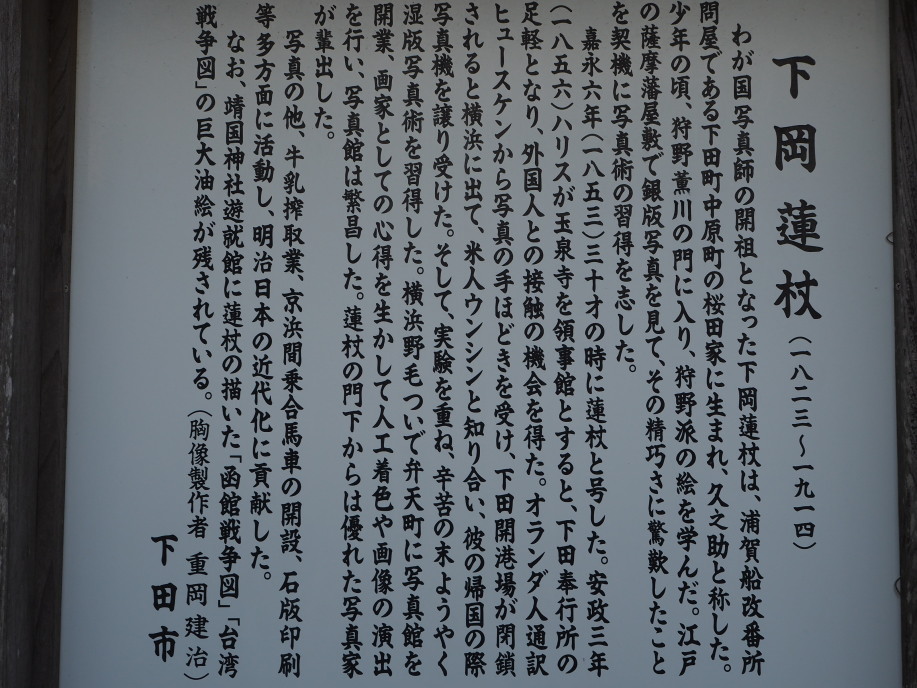 下岡蓮杖(一八二三～一九一四)
わが国写真師の開祖となった下岡蓮杖は、浦賀船改番所
問屋である下田町中原町の桜田家に生まれ、久之助と称した。
少年の頃、狩野薫川の門に入り、狩野派の絵を学んだ。江戸
の薩摩藩屋敷で銀版写真を見て、その精巧さに驚歎したこと
を契機に写真術の習得を志した。
嘉永六年(一八五三)三十才の時に蓮杖と号した。安政三年
(一八五六)ハリスが玉泉寺を領事館とすると、下田奉行所の
足軽となり、外国人との接触の機会を得た。オランダ人通訳
ヒュースケンから写真の手ほどきを受け、下田開港場が閉鎖
されると横浜に出て、米人ウンシンと知り合い、彼の帰国の際
写真機を譲り受けた。そして、実験を重ね、辛苦の末ようやく
湿版写真術を習得した。横浜野毛ついで弁天町に写真館を
開業、画家としての心得を生かして人工着色や画像の演出
を行い、写真館は繁昌した。蓮杖の門下からは優れた写真家
が輩出した。
写真の他、牛乳搾取業、京浜間乗合馬車の開設、石版印刷
等多方面に活動し、明治日本の近代化に貢献した。
なお、靖国神社遊就館に蓮杖の描いた「函館戦争図」「台湾
戦争図」の巨大油絵が残されている。(胸像製作者 重岡建治)
下田市